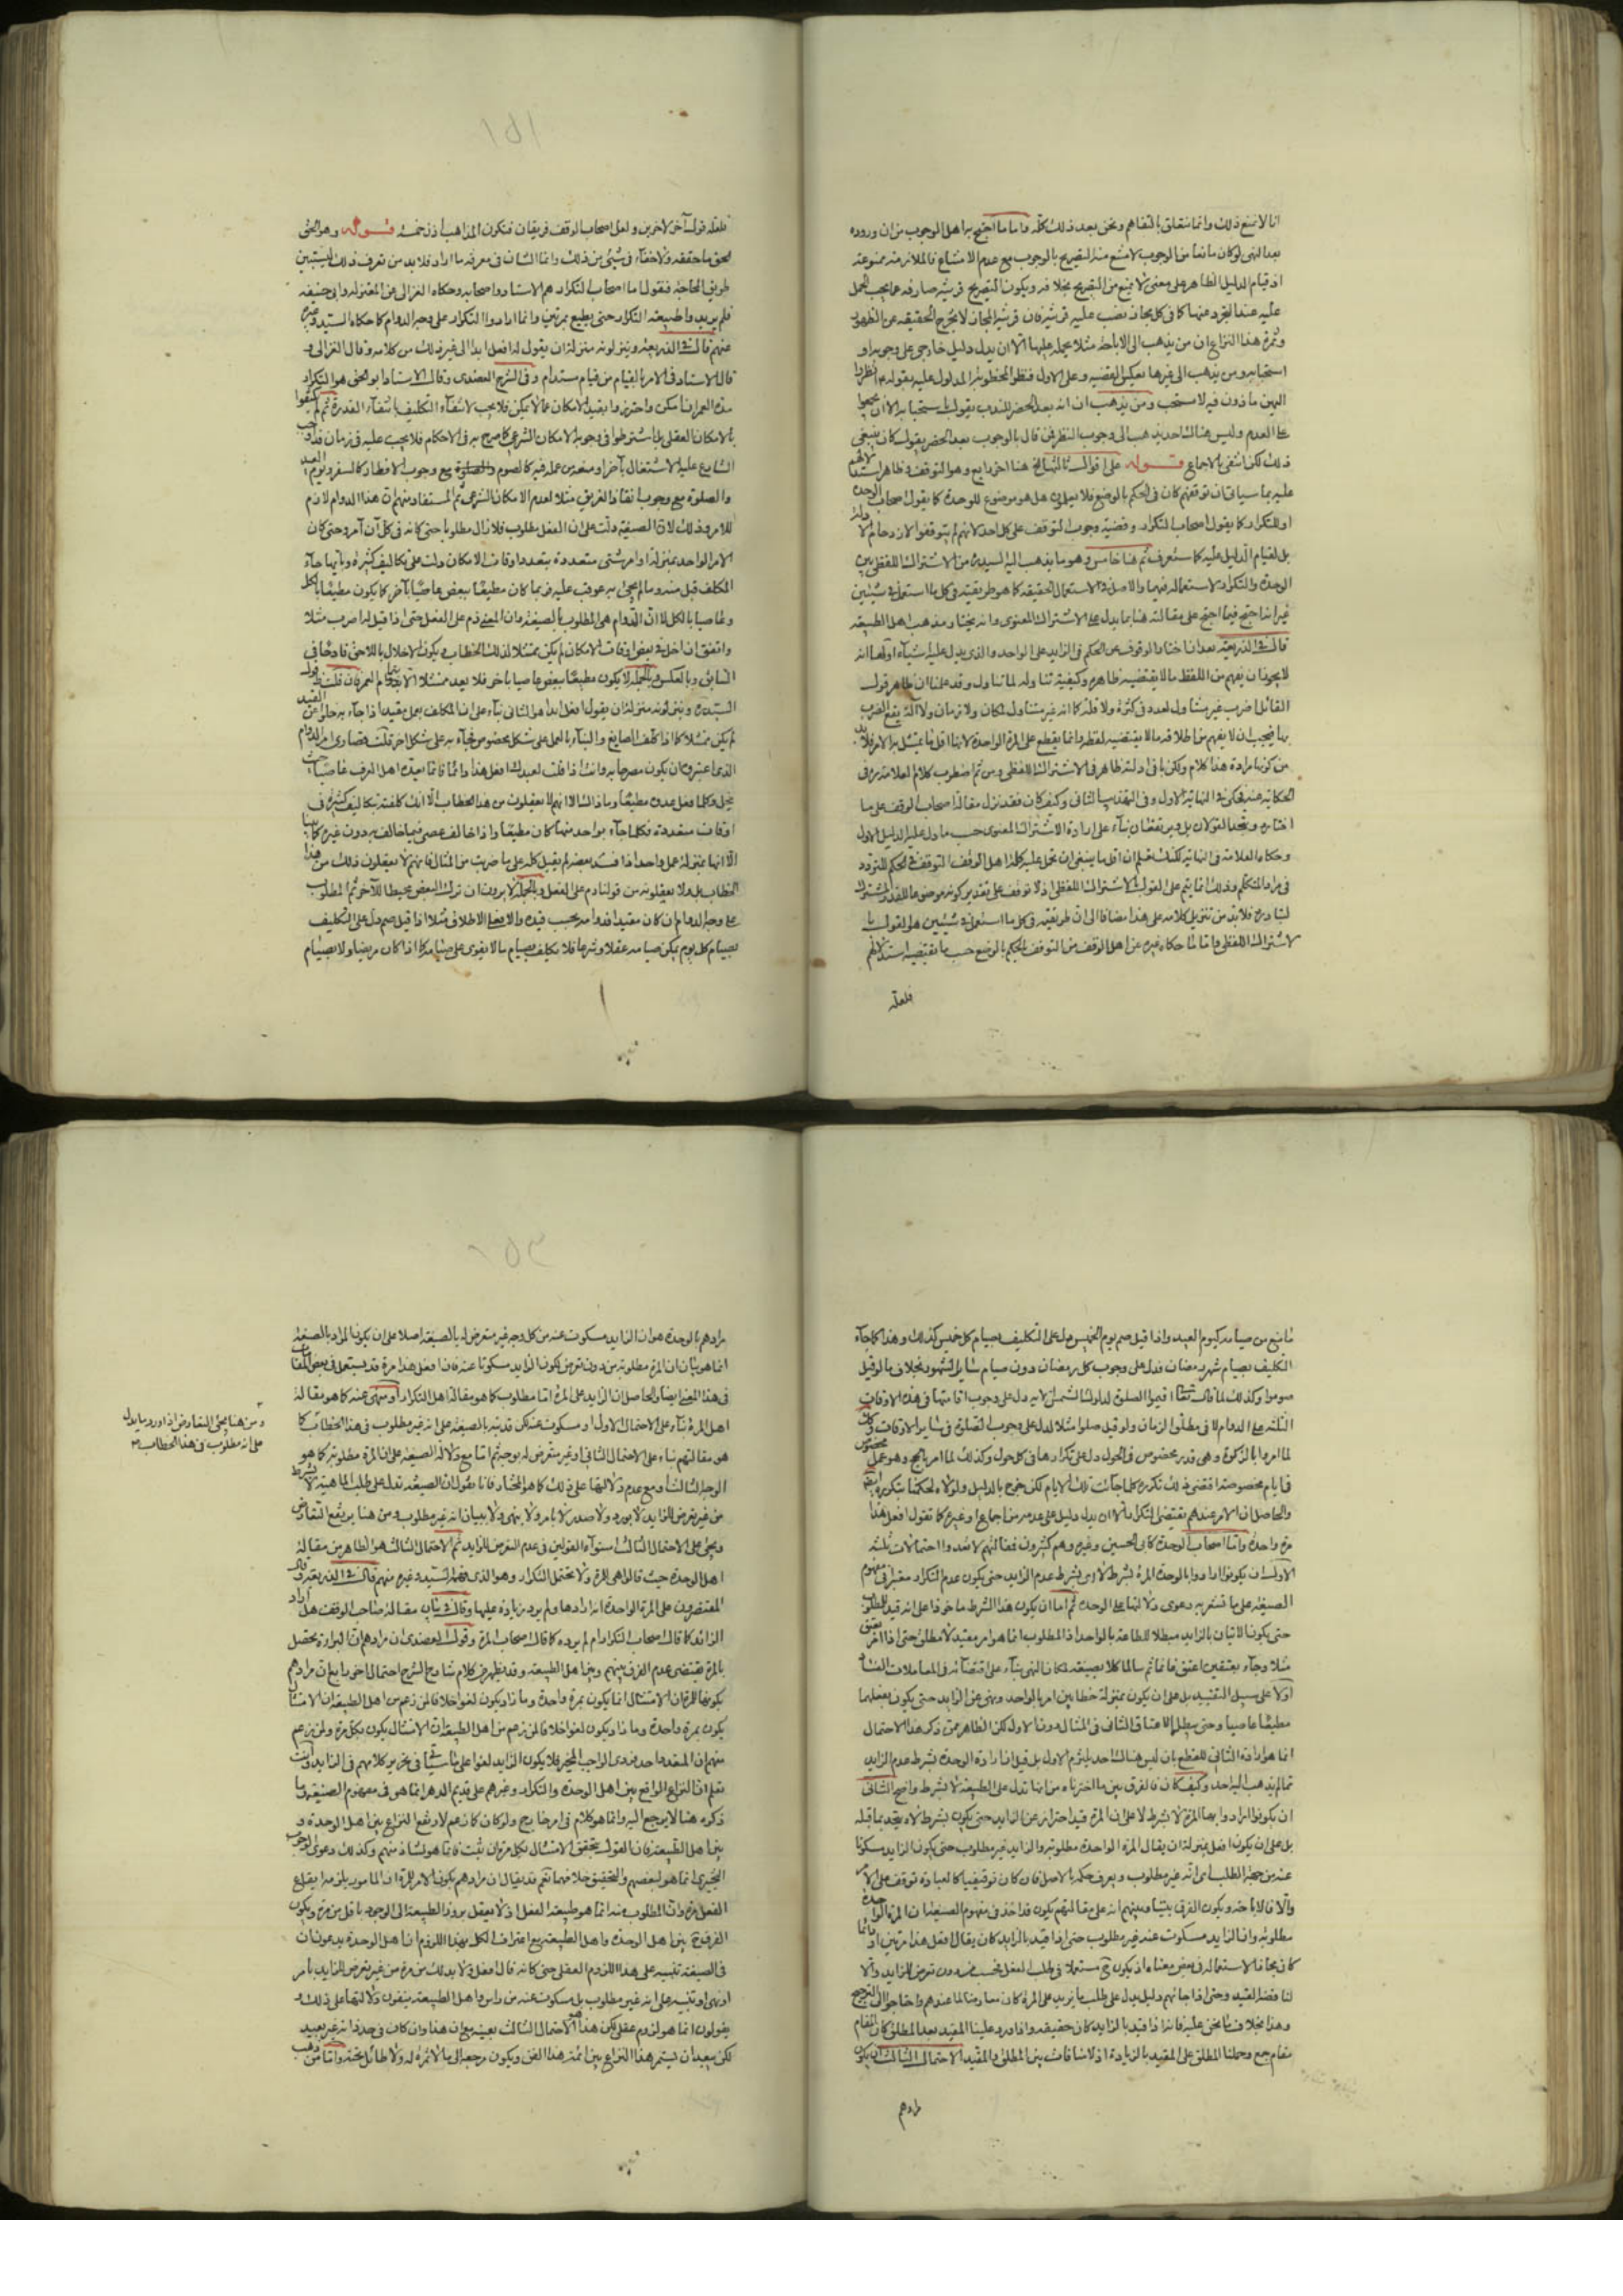 انا لا نمنع ذلك وانما نتعلق بالتفاهم ونحن بعد ذلك كله واما ما احتج به اهل الوجوب من ان وروده
بعد النهى لو كان مانعا من الوجوب لامتنع منه التصريح بالوجوب مع عدم الامتناع فالملازمة ممنوعة
اذ قيام الدليل الظاهر على معنى لا يمنع من التصريح بخلافه ويكون التصريح قرينة صارفة عما يجب الحمل
عليه عند التجرد عنها كما فى كل مجاز نصب عليه قرينة فان قرينة المجاز لا تخرج الحقيقة عن الظهور
وثمرة هذا النزاع ان من يذهب الى الاباحة مثلا يحمله عليها الا ان يدل دليل خارجى على وجوبه او
استحبابه ومن يذهب الى غيرها يعكس القضية وعلى الاول فنظر المحظور المدلول عليه بقوله انظروا
اليهن ماذون فيه لا مستحب ومن يذهب ان انه بعد الحضر للندب يقول باستحبابه الا ان
على العدم وليس هناك احد يذهب الى وجوب النظر فمن قال بالوجوب بعد الحضر يقول كان ينبغى
ذلك لكن انتفى بالاجماع قوله على اقوال ثالثها الخ هنا اخر رابع وهو التوقف وظاهر استدلالهم
عليه بما سياتى ان توقفهم كان فى الحكم بالوضع فلا يعلمون هل هو موضوع للوحدة كما يقول اصحاب الوحدة
او للتكرار كما يقول اصحاب التكرار وقضية وجوب التوقف على كل احد لانهم لم يتوقفوا لازدحام الادلة
بل لقيام الدليل عليه كما ستعرف ثم هنا خامس وهو ما يذهب اليه السيد من الاشتراك اللفظى بين
الوحدة والتكرار لاستعماله فيهما والاصل فى الاستعمال الحقيقة كما هو طريقته فى كل ما استعمل فى شيئين
غير انه احتج فيما احتج على مقالته هنا بما يدل على الاشتراك المعنوى وانه يختار مذهب اهل الطبيعة
قال فى الذريعة بعد ان اختار الوقوف عن الحكم فى الزايد على الواحد والذى يدل عليه اشياء اولها انه
لا يجوز ان يفهم من اللفظ ما لا يقتضيه ظاهره وكيفية تناوله لما تناول وقد علمنا ان ظاهر قول
القائل اضرب غير متناول لعدد فى كثرة ولا قلة كما انه غير متناول لمكان ولا زمان ولا آلة يقع الضرب
بها فيجب ان لا يفهم من اطلاقه ما لا يقتضيه لفظه وانما يقطع على المرة الواحدة لانها اقل ما يمتثل به الامر فلا بد
من كونها مرادة هذا كلامه ولكن باقى ادلته ظاهر فى الاشتراك اللفظى ومن ثم اضطرب كلام العلامة ره فى
الحكاية عنه فحكى فى النهاية الاول وفى التهذيب الثانى وكيف كان فقد نزل مقالة اصحاب الوقف على ما
اختاره ويتحد القولان بل وبرتفعان بناء على ارادة الاشتراك المعنوى حسب ما دل عليه الدليل الاول
وحكاه العلامة فى النهاية لكنك تعلم ان اقل ما ينبغى ان يحمل عليه كلام اهل الوقف التوقف فى الحكم للتردد
فى مراد المتكلم وذلك انما يتم على القول بالاشتراك اللفظى اذ لا توقف على تقدير كونه موضوعا للقدر المشترك
لتبادره فلا بد من تنزيل كلامه على هذا مضافا الى ان طريقته فى كل ما استعمل فى شيئين هو القول با
لاشتراك اللفظى واما ما حكاه غيره عن اهل الوقف من التوقف فى الحكم بالوضع حسب ما يقتضيه استدلالهم
فلعله
١٥١
فلعله قول آخر لاخرين ولعل اصحاب الوقف فريقان فتكون المذاهب اذن خمسة قوله وهو الحق
الحق ما حققه ولا خفاء فى شئ من ذلك وانما الشان فى معرفة ما اراد فلا بد من تعرف ذلك ليستبين
طريق المحاجة فنقول اما اصحاب التكرار هم الاستاد واصحابه وحكاه الغزالى عن المعتزلة وابى حنيفة
فلم يريدوا طبيعة التكرار حتى يطيع بمرتين وانما ارادوا التكرار على وجه الدوام كما حكاه السيد وغيره
عنهم قال فى الذريعة وينزلونه منزلة ان يقول له افعل ابدا الى غير ذلك من كلامه وقال الغزالى و
قال الاستاد فى الامر بالقيام من قيام مستدام وفى الشرح العضدى وقال الاستاد ابو اسحق هو التكرار
مدة العمر ان امكن واحترزوا بقيد الامكان عما لا يمكن فلا يجب لانتفاء التكليف بانتفاء القدرة ثم لم يكتفوا
بالامكان العقلى بل اشترطوا فى وجوبه الامكان الشرعى كما صرح به فى الاحكام فلا يجب عليه فى زمان قد اوجب
الشارع عليه الاشتغال بآخر او منعه من عمله فيه كالصوم مع وجوب الافطار كالسفر ويوم العيد
والصلوة مع وجوب انقاذ الغريق مثلا لعدم الامكان الشرعى ثم المستفاد منهم ان هذا الدوام لازم
للامر وذلك لان الصيغة دلت على ان الفعل مطلوب فلا زال مطلوبا حتى كانه فى كل آن آمر وحتى كان
الامر الواحد بمنزلة اوامر شتى متعددة بتعدد اوقات الامكان دلت على تكاليف كثيرة وبايها جاء
المكلف قبل منه وما لم يجئ به عوقب عليه فربما كان مطيعا ببعض عاصيا بآخر كما يكون مطيعا بالكل
وعاصيا بالكل لا ان الدوام هى المطلوب بالصيغة وان المعنى دم على الفعل حتى اذا قيل له اضرب مثلا
واتفق ان اخل فى بعض اوقات الامكان لم يكن ممتثلا لذلك الخطاب ويكون الاخلال باللاحق قادحا فى
السابق وبالعكس وبالجملة لا يكون مطيعا ببعض عاصيا بآخر فلا يعد ممتثلا الا بتمام العمر فان قلت قول
السيد ره وينزلونه منزلة ان يقول افعل ابدا هو الثانى بناء على ان المكلف بعمل مقيد اذا جاء به خلوا عن القيد
لم يكن ممتثلا كما اذا كلف الصايغ والبناء بالعمل على شكل مخصوص فجاء به على شكل اخر قلت قصارى امر الدوام
الذى اعتبروه ان يكون مصرحا به وانت اذا قلت لعبدك افعل هذا دائما فانما يعده اهل العرف عاصيا حيث
يخل وكلما فعل عدوه مطيعا وما ذاك الا انهم لا يعقلون من هذا الخطاب الا انك كلفته تكاليف كثيرة فى
اوقات متعددة فكلما جاء بواحد منها كان مطيعا واذا خالف عصى فيما خالف به دون غيره
الا انها بمنزلة عمل واحد اذا فسد بعضه لم يقبل كله على ما ضربت من المثال فانهم لا يعقلون ذلك من هذا
الخطاب بل ولا يعقلونه من قولنا دم على الفعل وبالجملة لا يرون ان ترك البعض محبطا للآخر ثم المطلوب
على وجه الدوام ان كان مقيدا فدوامه بحسب قيده والا فعلى الاطلاق مثلا اذا قيل صم دل على التكليف
بصيام كل يوم يمكن صيامه عقلا وشرعا فلا يكلف بصيام ما لا يقوى على صيامه كما اذا كان مريضا ولا بصيام
ما منع من صيامه كيوم العيد واذا قيل صم يوم الخميس دل على التكليف بصيام كل خميس كذلك وهذا كما جاء
التكليف بصيام شهر رمضان فدل على وجوب كل رمضان دون صيام سائر الشهور بخلاف ما لو قيل
صوموا وكذلك لما قال تعالى اقيموا الصلوة لدلوك الشمس الآية دل على وجوب اقامتها فى هذه الاوقات
الثلثة على الدوام لا فى مطلق الزمان ولو قيل صلوا مثلا لدل على وجوب الصلوة فى سائر الاوقات وكان
لما امروا بالزكوة وهى قدر مخصوص فى الحول دل على تكرارها فى كل حول وكذلك لما امر بالحج وهو عمل مخصوص
فى ايام مخصوصة اقتضى ذلك تكرره كلما جائت تلك الايام لكن خرج بالدليل ولولاه لحكمنا بتكرره ايضا
والحاصل ان الامر عندهم يقتضى التكرار الا ان يدل دليل على عدمه من اجماع او غيره كما تقول افعل هذا
مرة واحدة واما اصحاب الوحدة كابى الحسين وغيره وهم كثيرون فمقالتهم لا تعدوا احتمالات ثلثة
الاول ان يكونوا ارادوا بالوحدة المرة بشرط لا اى بشرط عدم الزايد حتى يكون عدم التكرار معتبرا فى مفهوم
الصيغة على ما تشعر به دعوى دلالتها على الوحدة ثم اما ان يكون هذا الشرط ماخوذا على انه قيد للمطلوب
حتى يكون الاتيان بالزايد مبطلا للطاعة بالواحد اذ المطلوب انما هو امر مقيد لا مطلق حتى اذا امر بعتق
مثلا وجاء بعتقين اعتق فانما ثم سالما كلا بصيغة لمكان النهى بناء على اقتضائه فى المعاملات الفساد
او لا على سبيل التقييد بل على ان يكون بمنزلة خطابين امر بالواحد ونهى عن الزايد حتى يكون بفعلهما
مطيعا عاصيا وحتى يبطل الاعتاق الثانى فى المثال دون الاول لكن الظاهر ممن ذكر هذا الاحتمال
انما هو ارادة الثانى للقطع بان ليس هناك احد يلتزم الاول بل قيل ان ارادة الوحدة بشرط عدم الزايد
مما لم يذهب اليه احد وكيف كان فالفرق بين ما اخترناه من انها تدل على الطبيعة لا بشرط واضح الثانى
ان يكونوا ارادوا بها المرة لا بشرط لا على ان المرة قيد احترز به عن الزايد حتى يكون بشرط لا ويتحد بما قبله
بل على ان يكون افعل بمنزلة ان يقال المرة الواحدة مطلوبة والزايد غير مطلوب حتى يكون الزايد مسكوتا
عنه من جهة الطلب اى انه غير مطلوب ويعرف حكمه بالاصل فان كان توقيفيا كالعبادة توقف على الامر
والا فالاباحة ويكون الفرق بيننا وبينهم انه على مقالتهم يكون قد اخذ فى مفهوم الصيغة ان المرة الواحدة
مطلوبة وان الزايد مسكوت عنه غير مطلوب حتى اذا قيد بالزايد كان يقال افعل هذا مرتين او دائما
كان مجازا لاستعماله فى بعض معناه اذ يكون ح مستعملا فى طلب الفعل فحسب من دون تعرض للزايد والا
لنا قضه القيد وحتى اذا جائهم دليل يدل على طلب ما يزيد على المرة كان معارضا لما عندهم واحتاجوا الى الترجيح
وهذا بخلاف ما نحن عليه فانه اذا قيد بالزايد كان حقيقة واذا ورد علينا المقيد بعد المطلق كان المقام
مقام جمع وحملنا المطلق على المقيد بالزيادة اذ لا منافات بين المطلق والمقيد الاحتمال الثالث ان يكون
مرادهم
١٥٢
مرادهم بالوحدة هو ان الزايد مسكوت عنه من كل وجه غير متعرض له بالصيغة اصلا على ان يكون المراد بالصيغة
انما هو بيان ان المرة مطلوبة من دون تعرض لكون الزايد مسكوتا عنه فان افعل هذا مرة قد يستعمل فى بعض المقامات
فى هذا المعنى ايضا والحاصل ان الزايد على المرة اما مطلوب كما هو مقالة اهل التكرار او منهى عنه كما هو مقالة
اهل المرة بناء على الاحتمال الاول او مسكوت عنه لكن قد نبه بالصيغة على انه غير مطلوب فى هذا الخطاب كما
هو مقالتهم بناء على الاحتمال الثانى او غير متعرض له بوجه ثم اما مع دلالة الصيغة على ان المرة مطلوبة كما هو
الوجه الثالث او مع عدم دلالتها على ذلك كما هو المختار فانا نقول ان الصيغة تدل على طلب الماهية لا بشرط
من غير تعرض للزايد لا بورود ولا صدر لا بامر ولا بنهى ولا بيان انه غير مطلوب ومن هنا يرتفع التعارض
ويجئ على الاحتمال الثالث استواء القولين فى عدم التعرض للزايد ثم الاحتمال الثالث هو الظاهر من مقالة
اهل الوحدة حيث قالوا هى للمرة ولا تحتمل التكرار وهو الذى فهمه السيد وغيره منهم قال فى الذريعة وقال
المقتصرون على المرة الواحدة انه ارادها ولم يرد زيادة عليها وقال فى بيان مقالة صاحب الوقف هل اراد
الزائد كما قال اصحاب التكرار ام لم يرده كما قال اصحاب المرة وقول العضدى ان مرادهم ان البراءة تحصل
بالمرة يقتضى عدم الفرق بينهم وبين اهل الطبيعة وقد يظهر من كلام شارح الشرح احتمال اخر رابع ان مرادهم
بكونها للمرة ان الامتثال انما يكون بمرة واحدة وما زاد يكون لغوا خلافا لمن زعم من اهل الطبيعة ان الامتثال
يكون بمرة واحدة وما زاد يكون لغوا خلافا لمن زعم من اهل الطبيعة ان الامتثال يكون بكل مرة ولمن زعم
منهم ان المتعدد احد فردى الواجب المخير فلا يكون الزايد لغوا على ما سياتى فى تحرير كلامهم فى الزايد وانت
تعلم ان النزاع الواقع بين اهل الوحدة والتكرار وغيرهم على قديم الدهر انما هو فى مفهوم الصيغة وما
ذكره هنا لا يرجع اليه وانما هو كلام فى امر خارج ولو كان كما زعم لارتفع النزاع بين اهل الوحدة و
بين اهل الطبيعة فان القول بتحقق الامتثال بكل مرة ان ثبت فانما هو لشاذ منهم وكذلك دعوى الوجوب
التخييرى انما هو لبعضهم والتحقيق خلافهما نعم قد يقال ان مرادهم بكون الامر للمرة ان المامور يلزمه ايقاع
الفعل مرة وان المطلوب منه انما هو طبيعة الفعل اذ لا يعقل بروز الطبيعة الى الوجود باقل من مرة ويكون
الفرق ح بين اهل الوحدة واهل الطبيعة مع اعتراف الكل بهذا اللزوم ان اهل الوحدة يدعون ان
فى الصيغة تنبيه على هذا اللزوم العقلى حتى كانه قال افعل ولا بد لك من مرة من غير تعرض للزايد بامر
او نهى او تنبيه على انه غير مطلوب بل مسكوت عنه من راس واهل الطبيعة ينفون دلالتها على ذلك و
يقولون انما هو لزوم عقلى لكن هذا هو الاحتمال الثالث بعينه مع ان هذا وان كان فى حد ذاته غير بعيد
لكن يبعد ان يستمر هذا النزاع بين ائمة هذا الفن ويكون مرجعه الى ما لا ثمرة له ولا طائل تحته واما من ذهب
ومن هنا يجئ التعارض اذا ورد ما يدل
على انه مطلوب فى هذا الخطاب